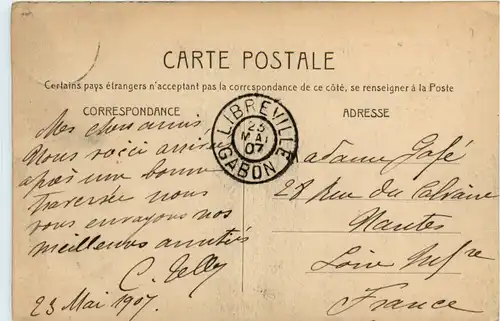 CARTE POSTALE
Certains pays étrangers n'acceptant pas la correspondance de ce côté, se renseigner à la Poste
CORRESPONDANCE
ADRESSE
LIBREVILLE
23
MAI
07
GABON
Mes chers amis
Nous voici arrivés
après une bonne
traversée nous
vous envoyons nos
meilleures amitiés
C. Telly
23 Mai 1907.
Madame Gafé
28 Rue du Calvaire
Nantes
Loire Infre
France